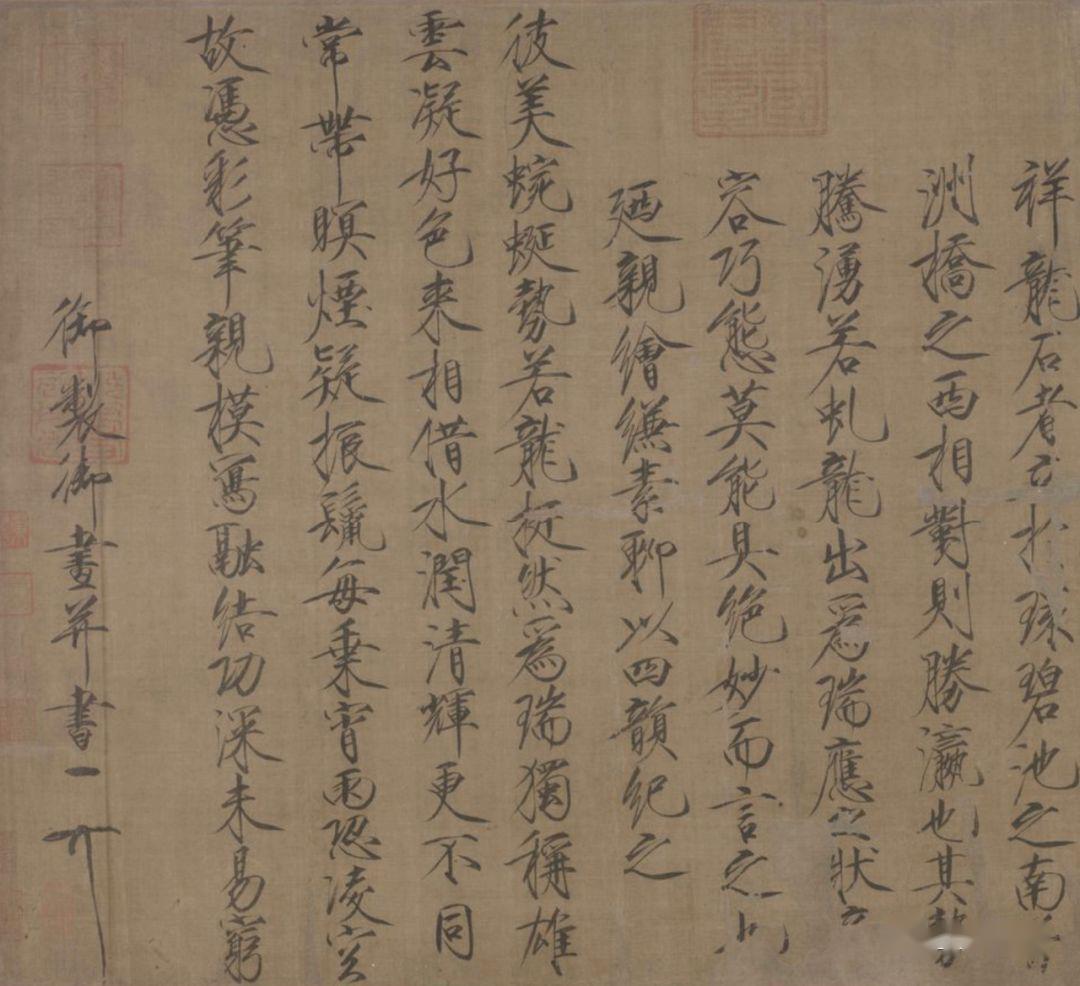 祥龍石者立於環碧池之南
洲橋之西相對則勝瀛也其勢
騰湧若虬龍出為瑞應之狀
容巧態莫能具絕妙而言之也
廼親繪縑素聊以四韻紀之
彼美蜿蜒勢若龍挺然為瑞獨稱雄
雲凝好色來相借水潤清輝更不同
常帶暝煙疑振鬣每乘宵雨恐凌空
故憑彩筆親模寫融結功深未易窮
御製御畫并書